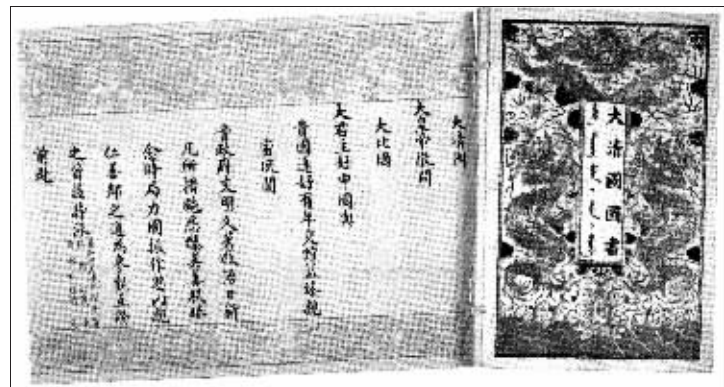 大清國國書
大清國
大皇帝敬問
大比國
大君主好中國與
貴國通好有年交際益臻親
密朕聞
貴政府文明久著政治日新
凡所措施悉臻美善朕眷
念時局力圖振作思以親
仁善鄰之道為
之資茲特派
前赴